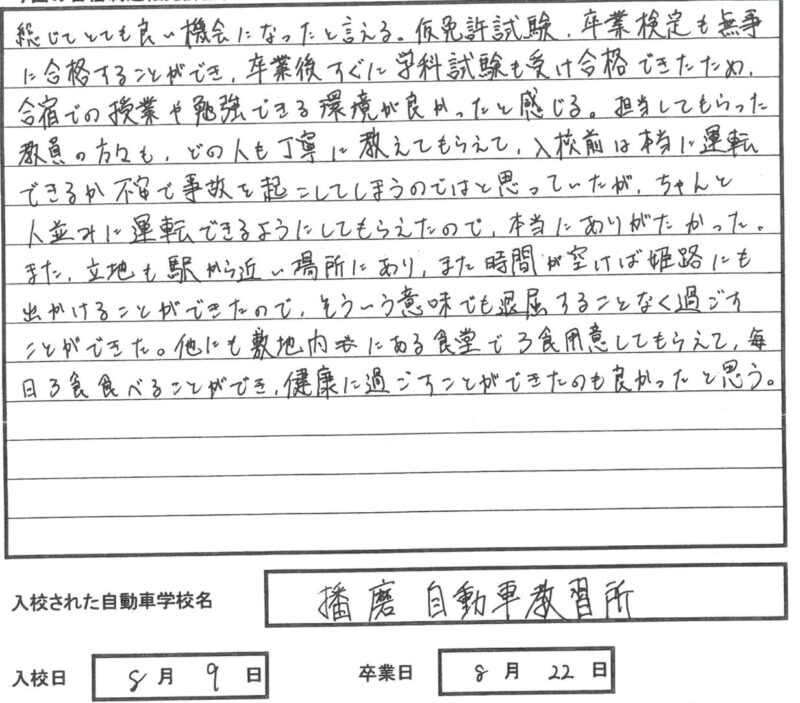 総じてとても良い機会になったと言える。仮免許試験、卒業検定も無事
に合格することができ、卒業後すぐに学科試験も受け合格できたため、
合宿での授業や勉強できる環境が良かったと感じる。担当してもらった
教員の方々も、どの人も丁寧に教えてもらえて、入校前は本当に運転
できるか不安で事故を起こしてしまうのではと思っていたが、ちゃんと
人並みに運転できるようにしてもらえたので、本当にありがたかった。
また、立地も駅から近い場所にあり、また時間が空けば姫路にも
出かけることができたので、そういう意味でも退屈することなく過ごす
ことができた。他にも敷地内にある食堂で3食用意してもらえて、毎
日3食食べることができ、健康に過ごすことができたのも良かったと思う。
入校された自動車学校名 播磨自動車教習所
入校日 8月9日 卒業日 8月22日